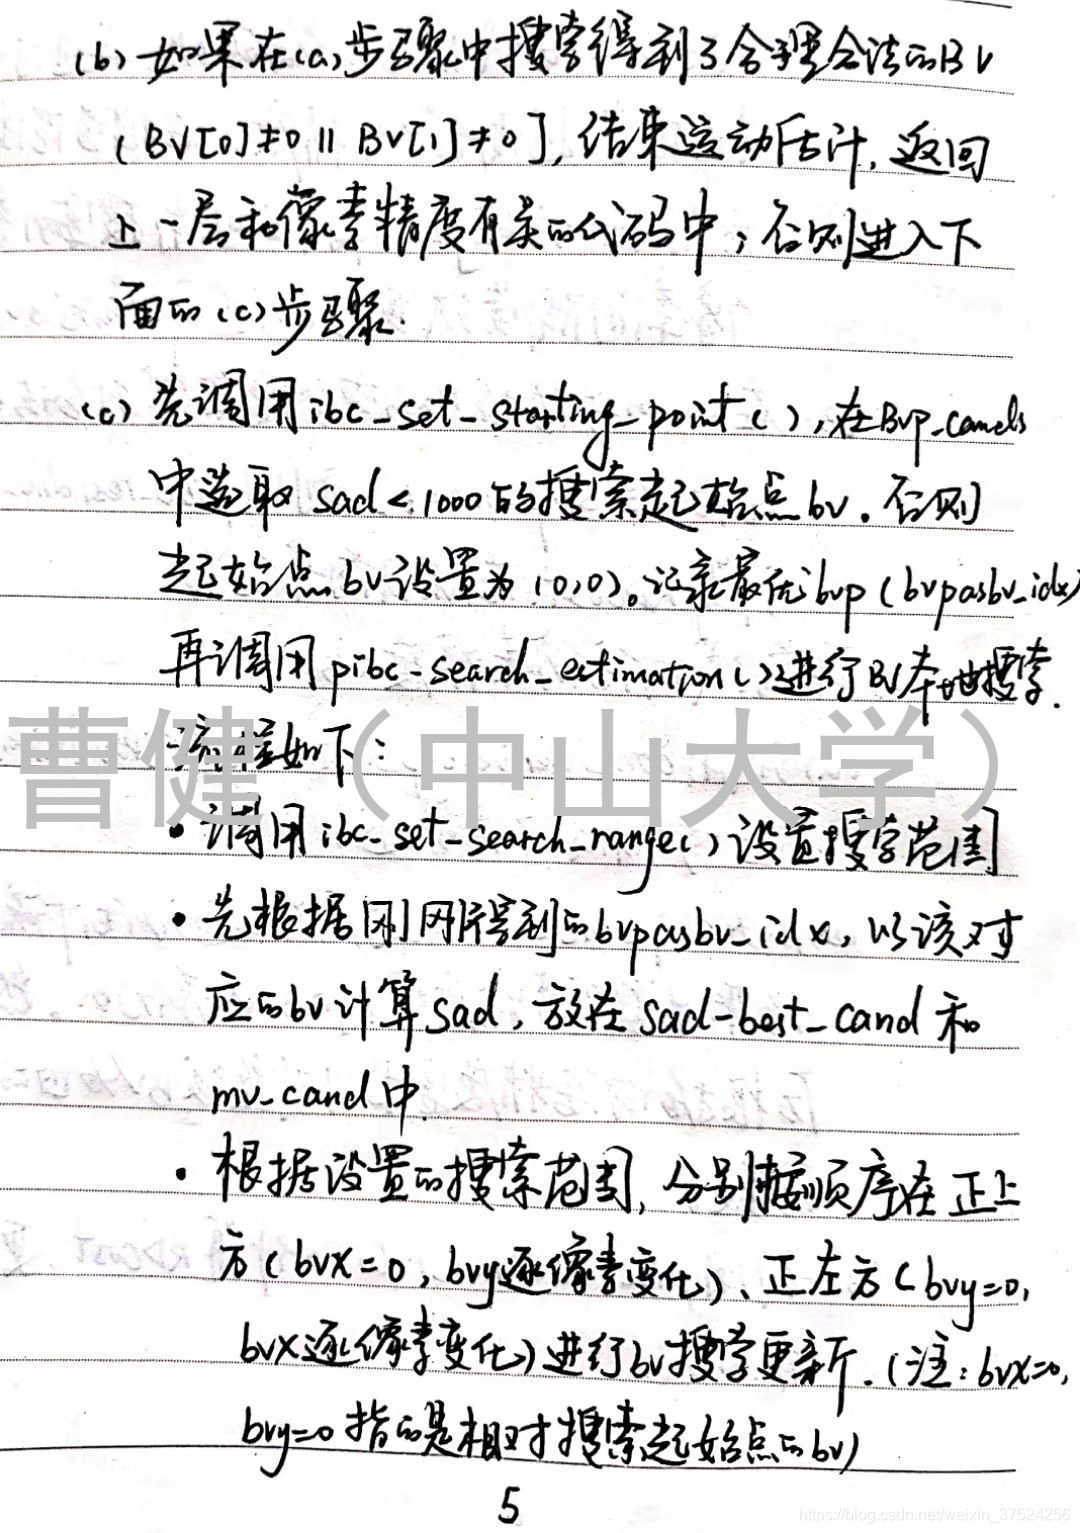 (b) 如果在(a)步骤中搜索得到了合理合法的BV
(BV[0]≠0 || BV[1]≠0], 结束运动估计, 返回
上一层和像素精度有关的代码中；否则进入下
面的(c)步骤.
(c) 先调用ibc_set_starting_point(), 在Bvp_cands
中选取 sad<1000的搜索起始点bv。否则
起始点bv设置为(0,0)。记录最优bvp(bvpasbv_idx)
再调用pibc_search_estimation()进行BV本地搜索.
流程如下：
曹健（中山大学）
• 调用ibc_set_search_range()设置搜索范围
• 先根据刚刚得到的bvpasbv_idx, 以该对
应的bv计算sad, 放在sad_best_cand和
mv_cand中
• 根据设置的搜索范围, 分别按顺序在正上
方(bvx=0, bvy逐像素变化)、正左方(bvy=0,
bvx逐像素变化)进行bv搜索更新.(注: bvx=0,
bvy=0指的是相对搜索起始点的bv)
5
https://blog.csdn.net/weixin_37524256